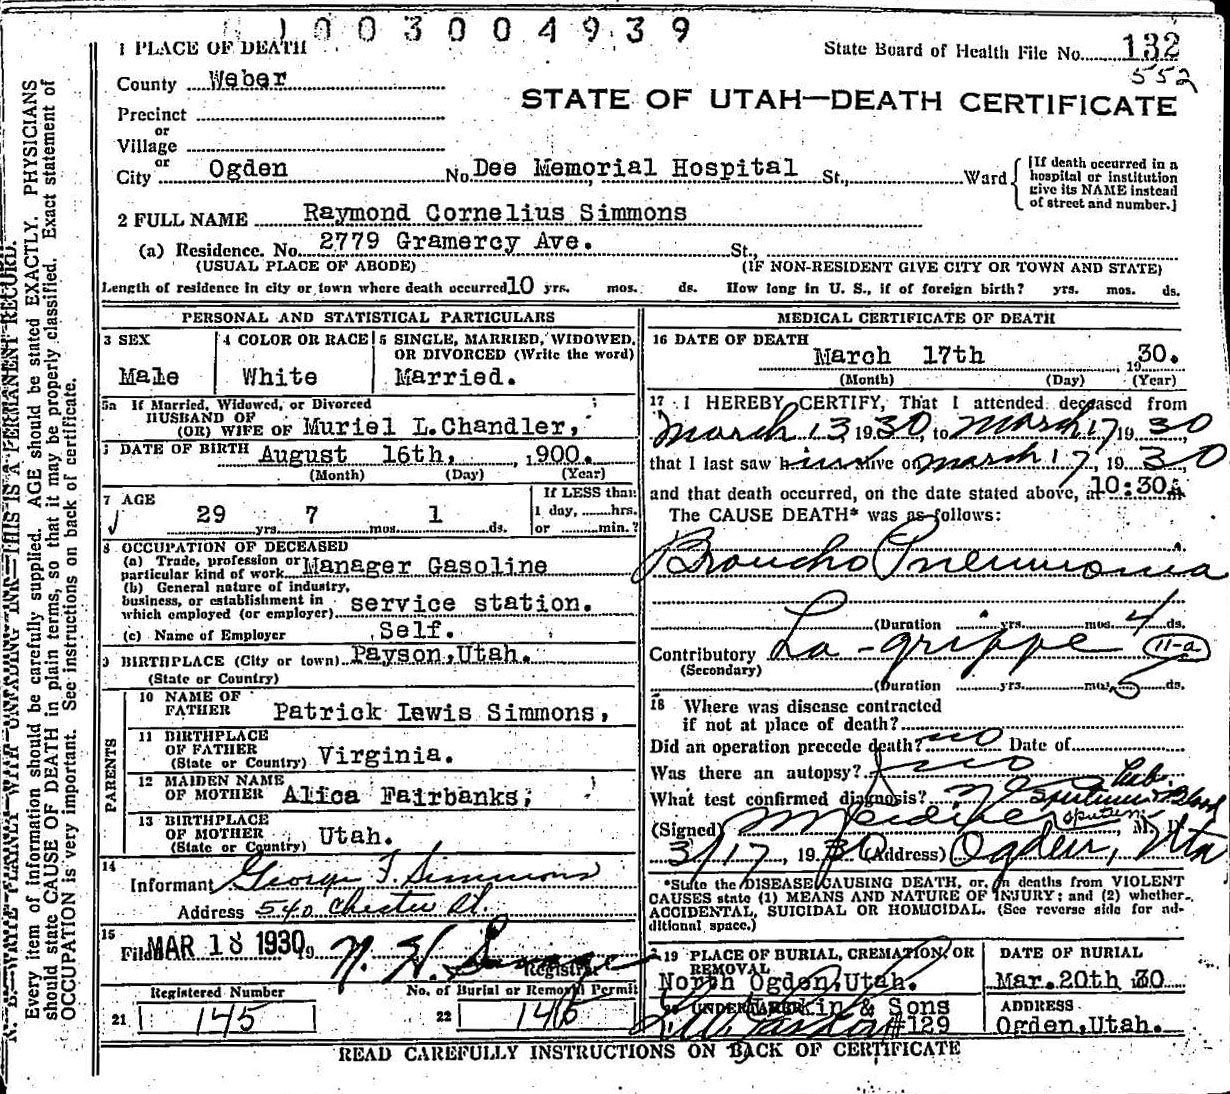 1003004939
1 PLACE OF DEATH
State Board of Health File No. 132
552
County Weber
STATE OF UTAH—DEATH CERTIFICATE
Precinct
or
Village
or
City Ogden No. Dee Memorial Hospital St., Ward
[If death occurred in a
hospital or institution
give its NAME instead
of street and number.]
2 FULL NAME Raymond Cornelius Simmons
(a) Residence. No. 2779 Gramercy Ave. St.,
(USUAL PLACE OF ABODE) (IF NON-RESIDENT GIVE CITY OR TOWN AND STATE)
Length of residence in city or town where death occurred 10 yrs. mos. ds. How long in U. S., if of foreign birth? yrs. mos. ds.
PERSONAL AND STATISTICAL PARTICULARS
3 SEX
Male
4 COLOR OR RACE
White
5 SINGLE, MARRIED, WIDOWED,
OR DIVORCED (Write the word)
Married.
5a If Married, Widowed, or Divorced
HUSBAND OF
(OR) WIFE OF Muriel L.Chandler,
DATE OF BIRTH August 16th, 1900.
(Month) (Day) (Year)
7 AGE
29 yrs. 7 mos. 1 ds.
If LESS than
1 day, hrs.
or min.?
8 OCCUPATION OF DECEASED
(a) Trade, profession or
particular kind of work Manager Gasoline
(b) General nature of industry,
business, or establishment in
which employed (or employer) service station.
(c) Name of Employer Self.
9 BIRTHPLACE (City or town) Payson,Utah.
(State or Country)
PARENTS
10 NAME OF
FATHER Patrick Lewis Simmons,
11 BIRTHPLACE
OF FATHER
(State or Country) Virginia.
12 MAIDEN NAME
OF MOTHER Alica Fairbanks,
13 BIRTHPLACE
OF MOTHER
(State or Country) Utah.
14
Informant George F. Simmons
Address 540 Chester St.
15
Filed MAR 18 1930 19
N. H. Savage
Registrar
Registered Number
21 145
No. of Burial or Removal Permit
22 146
MEDICAL CERTIFICATE OF DEATH
16 DATE OF DEATH
March 17th 1930.
(Month) (Day) (Year)
17 I HEREBY CERTIFY, That I attended deceased from
March 13, 1930, to March 17 1930
that I last saw him alive on March 17, 1930
and that death occurred, on the date stated above, at 10:30A
The CAUSE DEATH* was as follows:
Broncho Pneumonia
(Duration yrs. mos. 4 ds.
Contributory La-grippe 11-a
(Secondary)
(Duration yrs. mos. 5 ds.
18 Where was disease contracted
if not at place of death?
Did an operation precede death? no Date of
Was there an autopsy? no
What test confirmed diagnosis? Sputum & Blood
Lab.
sputum
(Signed) M. D.
3/17, 1930 (Address) Ogden, Uta
*State the DISEASE CAUSING DEATH, or, in deaths from VIOLENT
CAUSES state (1) MEANS AND NATURE OF INJURY; and (2) whether
ACCIDENTAL, SUICIDAL OR HOMICIDAL. (See reverse side for ad-
ditional space.)
19 PLACE OF BURIAL, CREMATION, OR
REMOVAL
North Ogden,Utah.
DATE OF BURIAL
Mar.20th 30
UNDERTAKER Larkin & Sons
#129
ADDRESS
Ogden,Utah.
READ CAREFULLY INSTRUCTIONS ON BACK OF CERTIFICATE
N. B.—WRITE PLAINLY WITH UNFADING INK—THIS IS A PERMANENT RECORD.
Every item of information should be carefully supplied. AGE should be stated EXACTLY. PHYSICIANS
should state CAUSE OF DEATH in plain terms, so that it may be properly classified. Exact statement of
OCCUPATION is very important. See instructions on back of certificate.